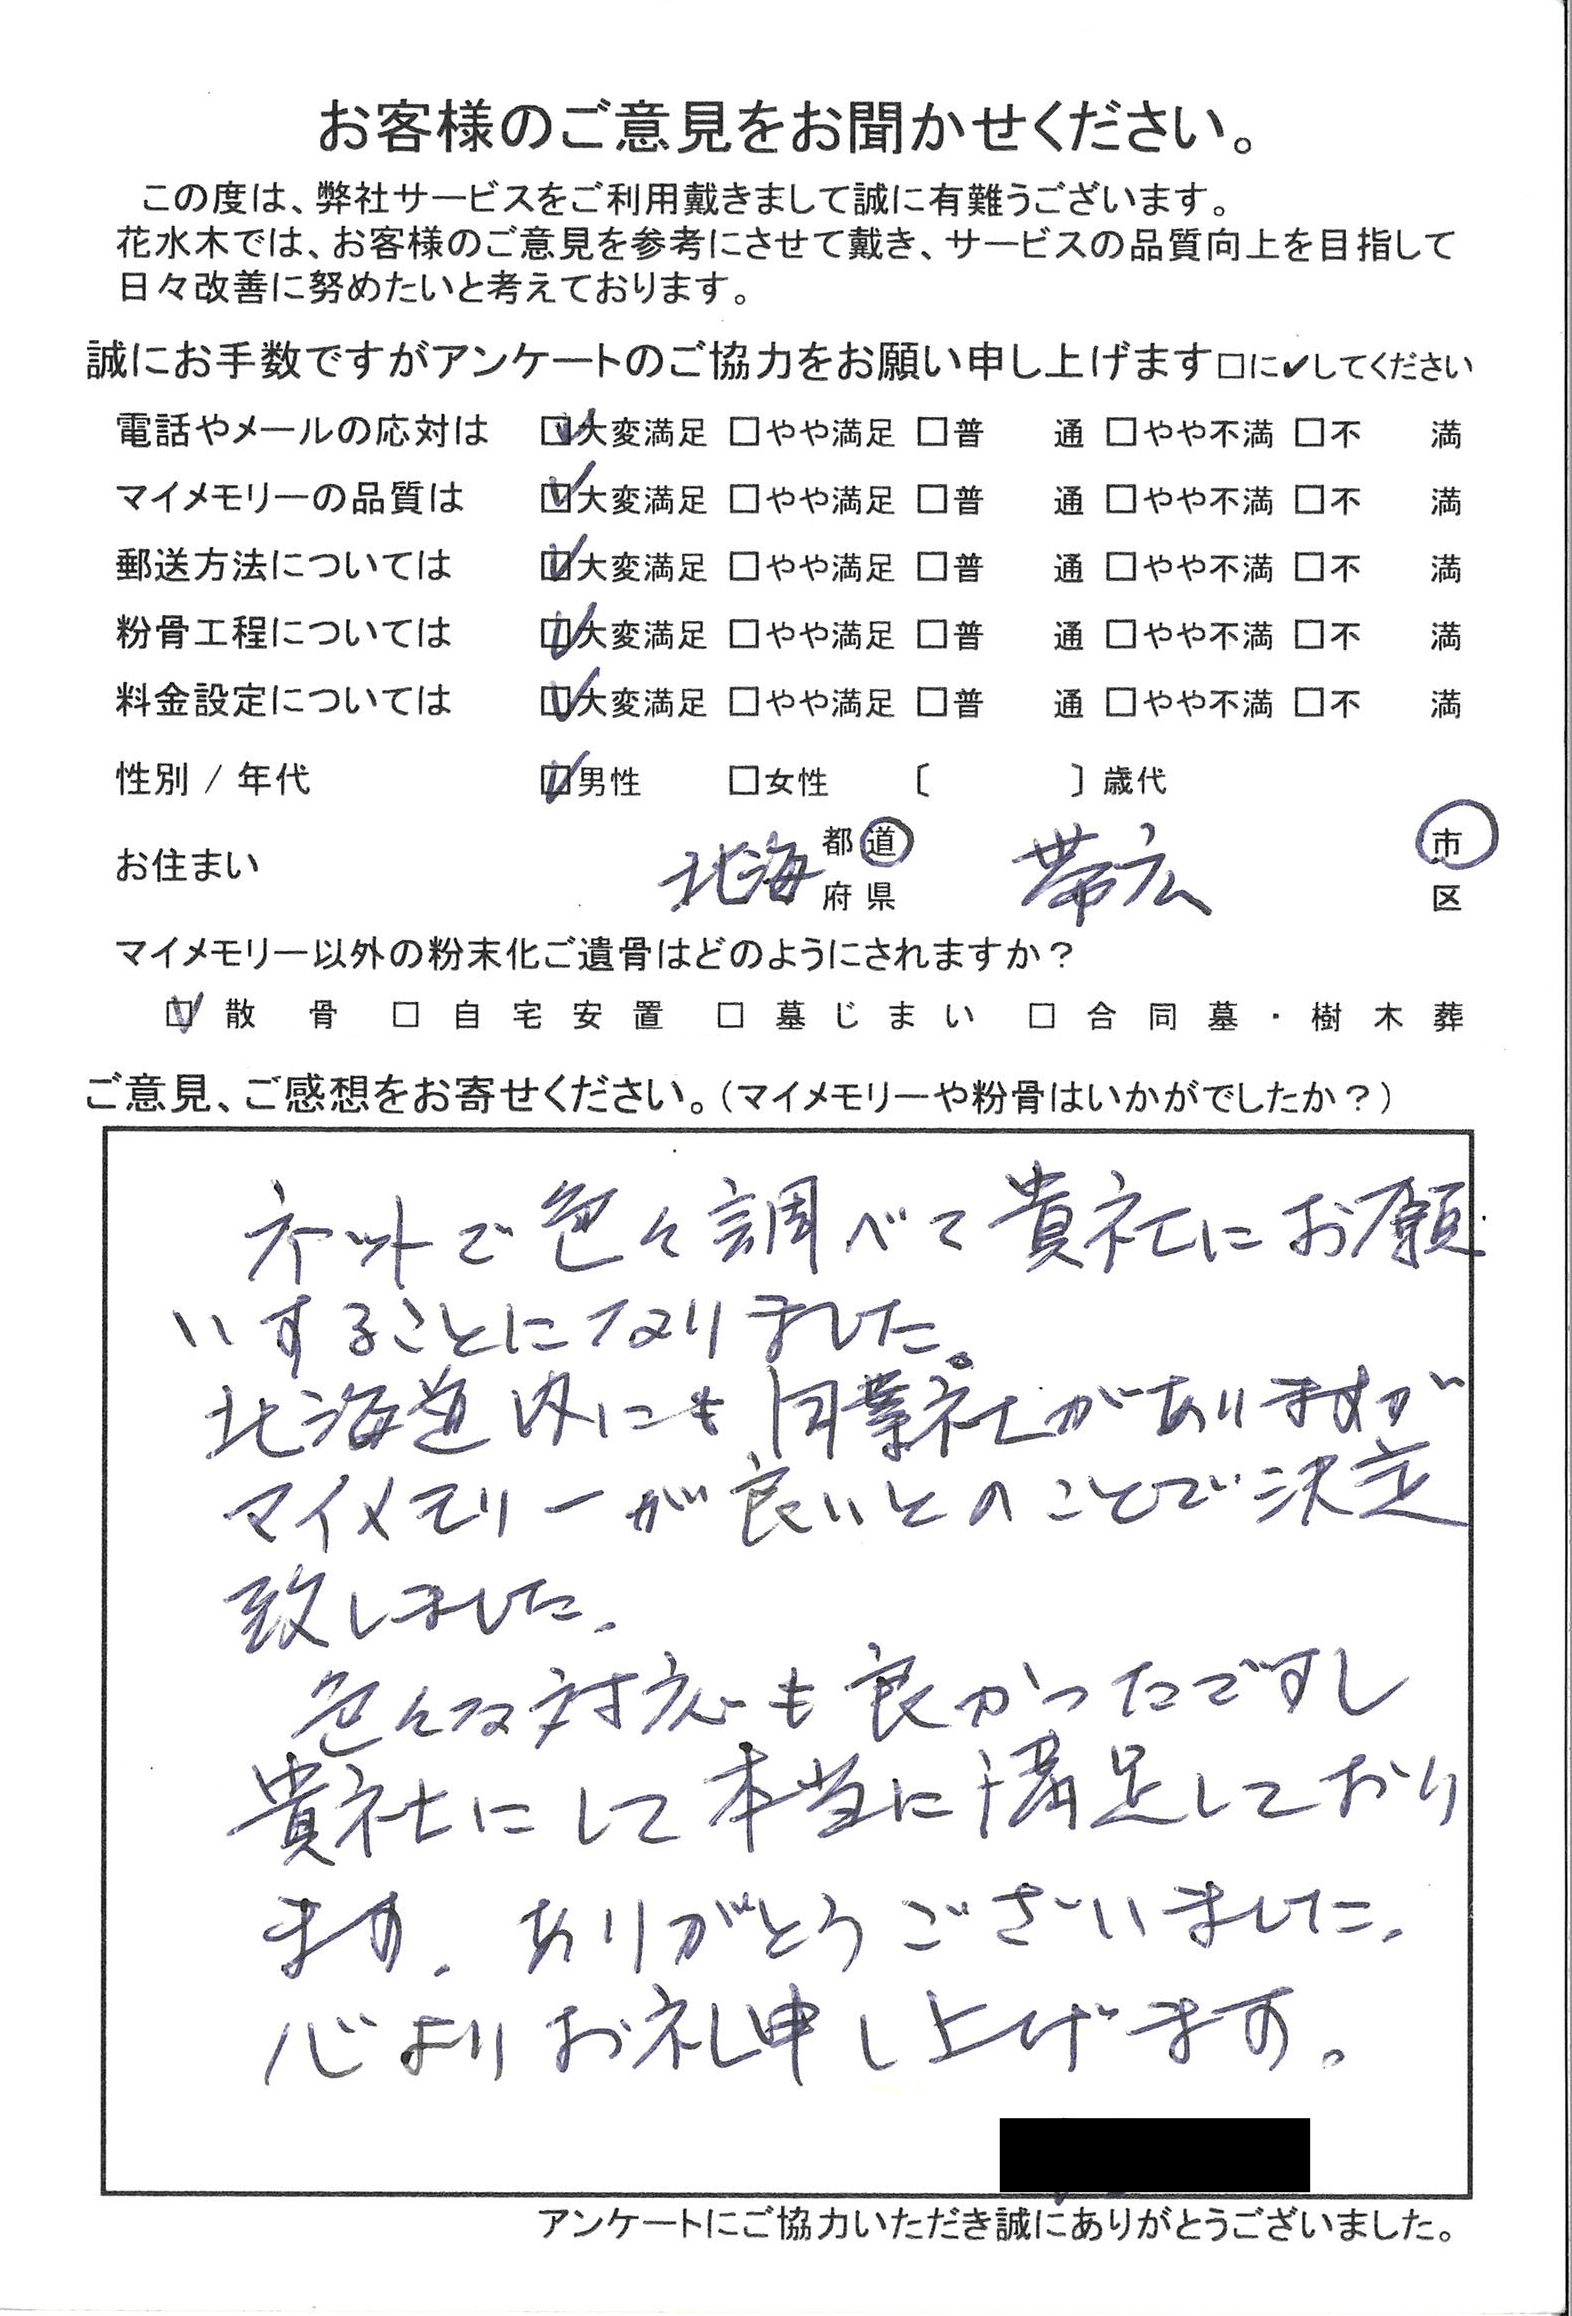 お客様のご意見をお聞かせください。
この度は、弊社サービスをご利用戴きまして誠に有難うございます。
花水木では、お客様のご意見を参考にさせて戴き、サービスの品質向上を目指して
日々改善に努めたいと考えております。
誠にお手数ですがアンケートのご協力をお願い申し上げます□に✔してください
電話やメールの応対は ☑大変満足 □やや満足 □普 通 □やや不満 □不 満
マイメモリーの品質は ☑大変満足 □やや満足 □普 通 □やや不満 □不 満
郵送方法については ☑大変満足 □やや満足 □普 通 □やや不満 □不 満
粉骨工程については ☑大変満足 □やや満足 □普 通 □やや不満 □不 満
料金設定については ☑大変満足 □やや満足 □普 通 □やや不満 □不 満
性別 / 年代 ☑男性 □女性 〔 〕歳代
都道 市
お住まい 北海 帯広
府県 区
マイメモリー以外の粉末化ご遺骨はどのようにされますか？
☑ 散骨 □ 自宅安置 □ 墓じまい □ 合同墓・樹木葬
ご意見、ご感想をお寄せください。（マイメモリーや粉骨はいかがでしたか？）
ネットで色々調べて貴社にお願
いすることになりました。
北海道内にも同業社がありますが
マイメモリーが良いとのことで決定
致しました。
色々な対応も良かったですし
貴社にして本当に満足しており
ます。ありがとうございました。
心よりお礼申し上げます。
アンケートにご協力いただき誠にありがとうございました。